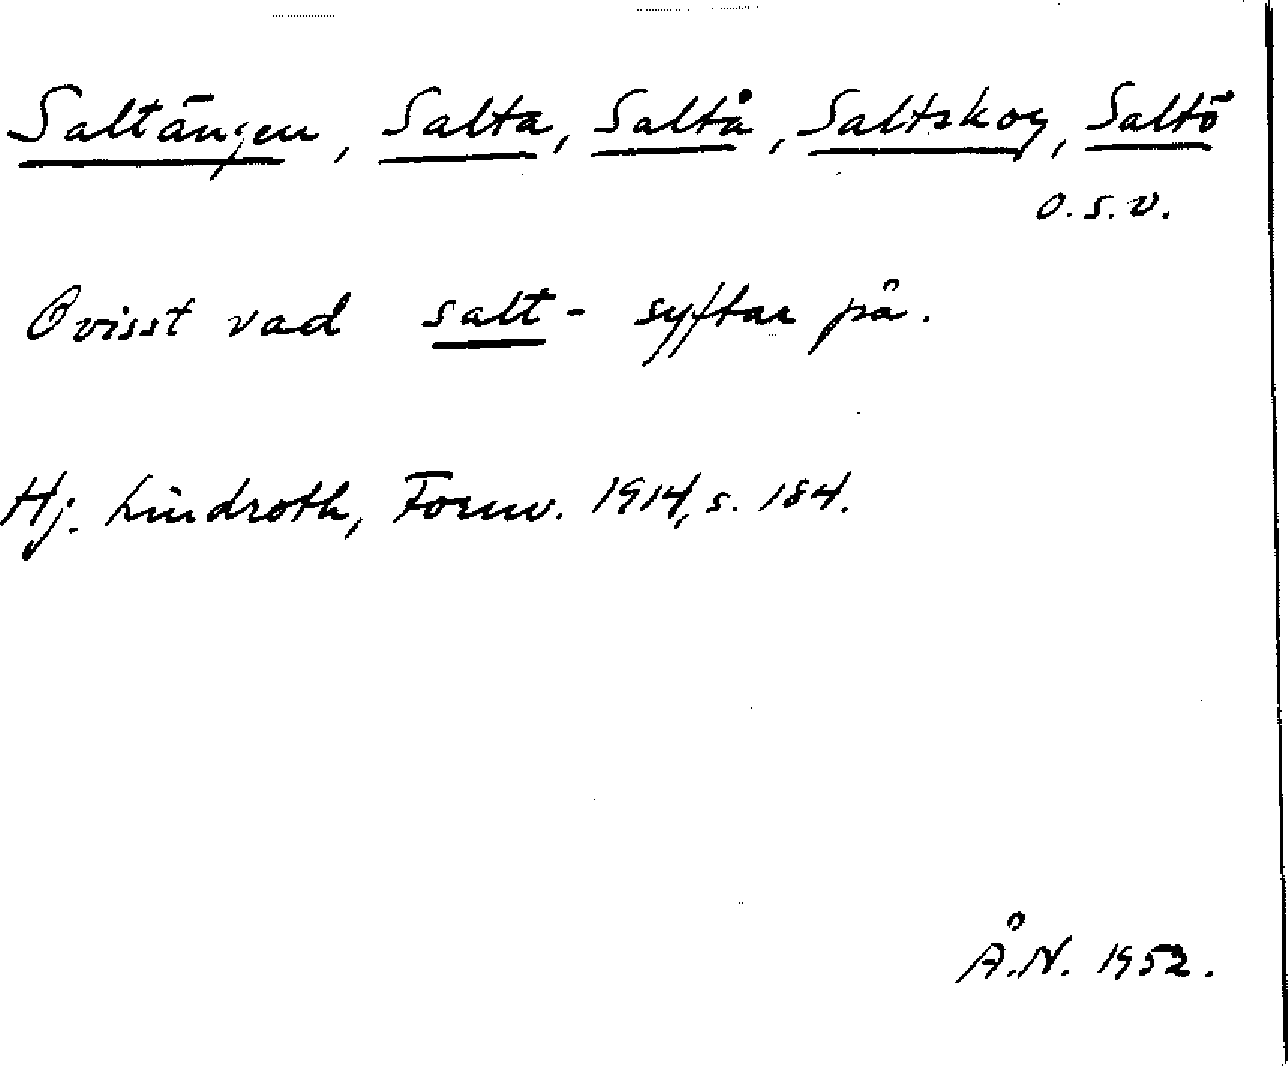 Saltängen, Salta, Saltå, Saltskog, Saltö
o.s.v.
Ovisst vad salt- syftar på.
Hj. Lindroth, Fornv. 1914, s. 184.
Å.N. 1952.